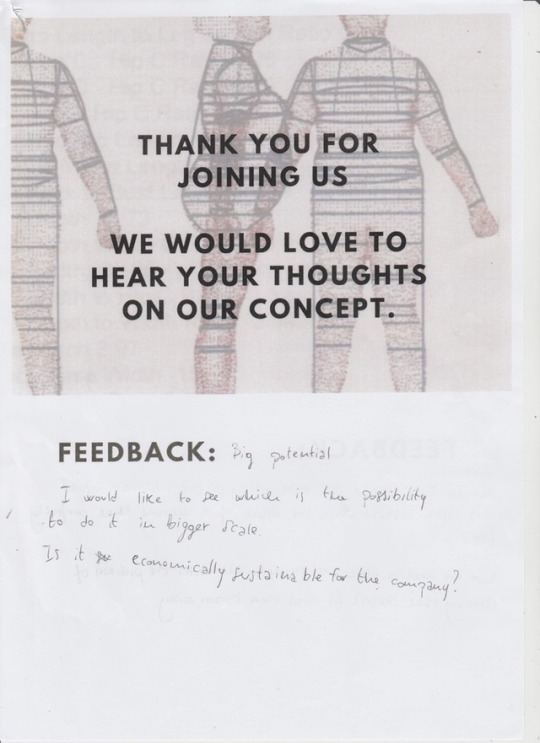 THANK YOU FOR
JOINING US
WE WOULD LOVE TO
HEAR YOUR THOUGHTS
ON OUR CONCEPT.
FEEDBACK: Big potential
I would like to see which is the possibility
to do it in bigger scale.
Is it economically sustainable for the company?